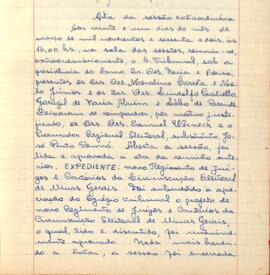 Ata da sessão extraordinária
Aos vinte e um dias do mês de
março de mil novecentos e sessenta e dois, às
16,00 hrs, na sala das sessões, reuniu-se,
extraordinariamente, o E. Tribunal, sob a
presidência do Exmo. Sr. Des. Faria e Sousa,
presentes os Srs. Des. Merolino Corrêa e
Júnior e os Srs. Drs. Lindolfo Costa
de Faria Alvim e
Deixaram de comparecer, por motivo justi-
ficado, os Srs. Drs. Samuel Werneck e o
Procurador Regional Eleitoral, substituto, José
Pinto Renó. Aberta a sessão, foi
lida e aprovada a ata da reunião ante-
rior. EXPEDIENTE: novo Regimento de Juí-
zos e Cartórios da Circunscrição Eleitoral
de Minas Gerais. Foi submetido à apre-
ciação do Egrégio Tribunal o projeto de
novo Regimento de Juízos e Cartórios da
Circunscrição Eleitoral de Minas Gerais,
o qual, lido e discutido, foi unânime-
mente aprovado. Nada mais haven-
do a tratar, a sessão foi encerrada